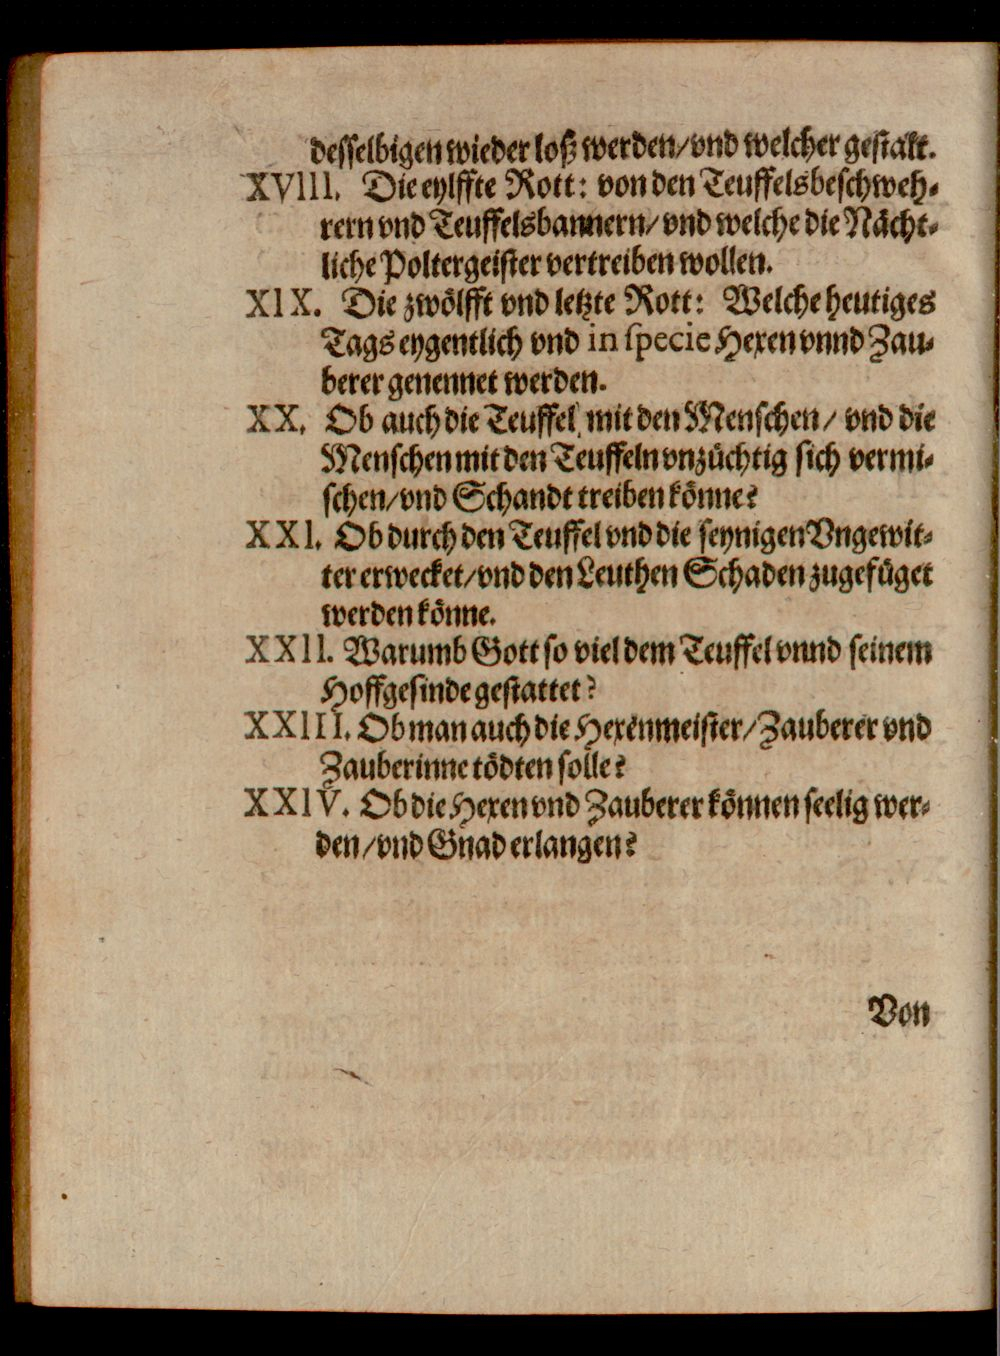 desselbigen wieder loß werden/vnd welcher gestalt.
XVIII. Die eylffte Rott: von den Teuffelsbeschweh-
rern vnd Teuffelsbannern/vnd welche die Nächt-
liche Poltergeister vertreiben wollen.
XIX. Die zwölfft vnd letzte Rott: Welche heutiges
Tags eygentlich vnd in specie Hexen vnnd Zau-
berer genennet werden.
XX. Ob auch die Teuffel mit den Menschen/ vnd die
Menschen mit den Teuffeln vnzüchtig sich vermi-
schen/vnd Schandt treiben könne?
XXI. Ob durch den Teuffel vnd die seynigen Vngewit-
ter erwecket/vnd den Leuthen Schaden zugefüget
werden könne.
XXII. Warumb Gott so viel dem Teuffel vnnd seinem
Hoffgesinde gestattet?
XXIII. Ob man auch die Hexenmeister/Zauberer vnd
Zauberinne tödten solle?
XXIV. Ob die Hexen vnd Zauberer können seelig wer-
den/vnd Gnad erlangen?
Von